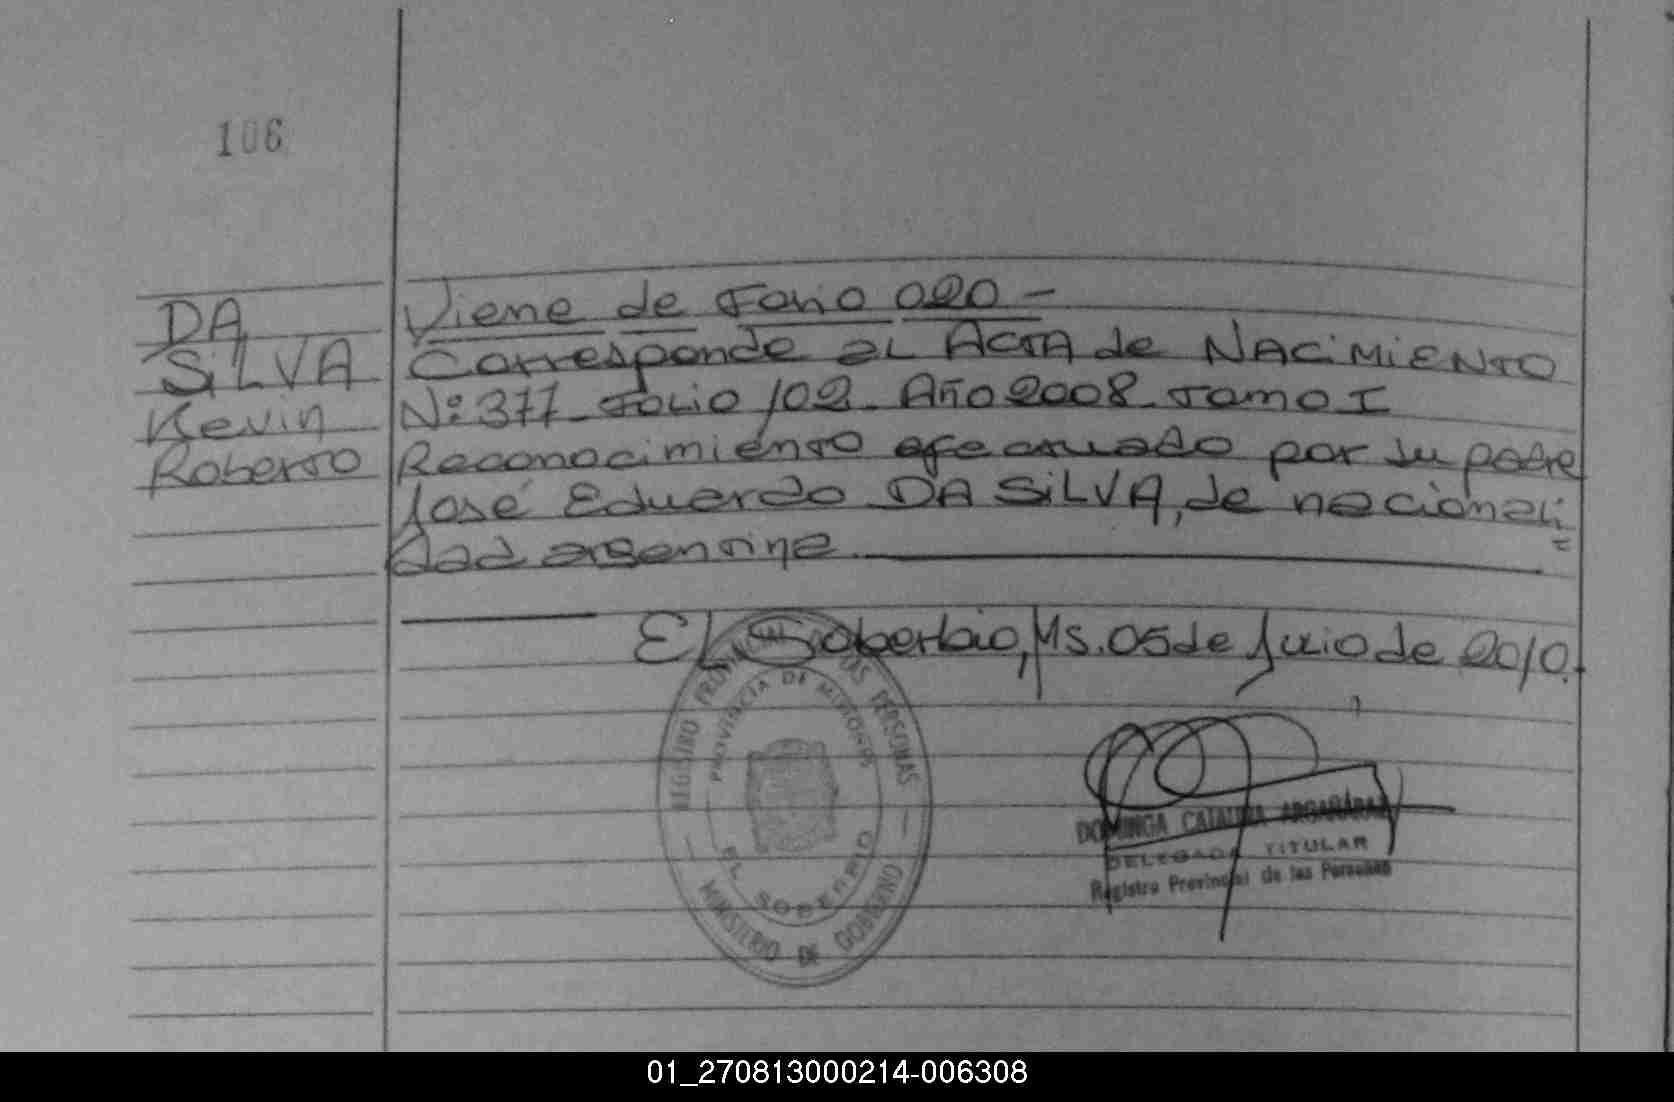 106
DA
SiLVA
Kevin
Roberto
Viene de Folio 020 -
Corresponde al ACTA de NACiMiENTO
Nº 377 - Folio 102 - Año 2008 - Tomo I
Reconocimiento efectuado por su padre
José Eduardo DA SiLVA, de nacionali=
dad argentina.
El Soberbio, Ms. 05 de Julio de 2010.
REGISTRO PROVINCIAL DE LAS PERSONAS
PROVINCIA DE MISIONES
EL SOBERBIO
MINISTERIO DE GOBIERNO
DOMINGA CATALINA ARGAÑARAZ
DELEGADA TITULAR
Registro Provincial de las Personas
01_270813000214-006308